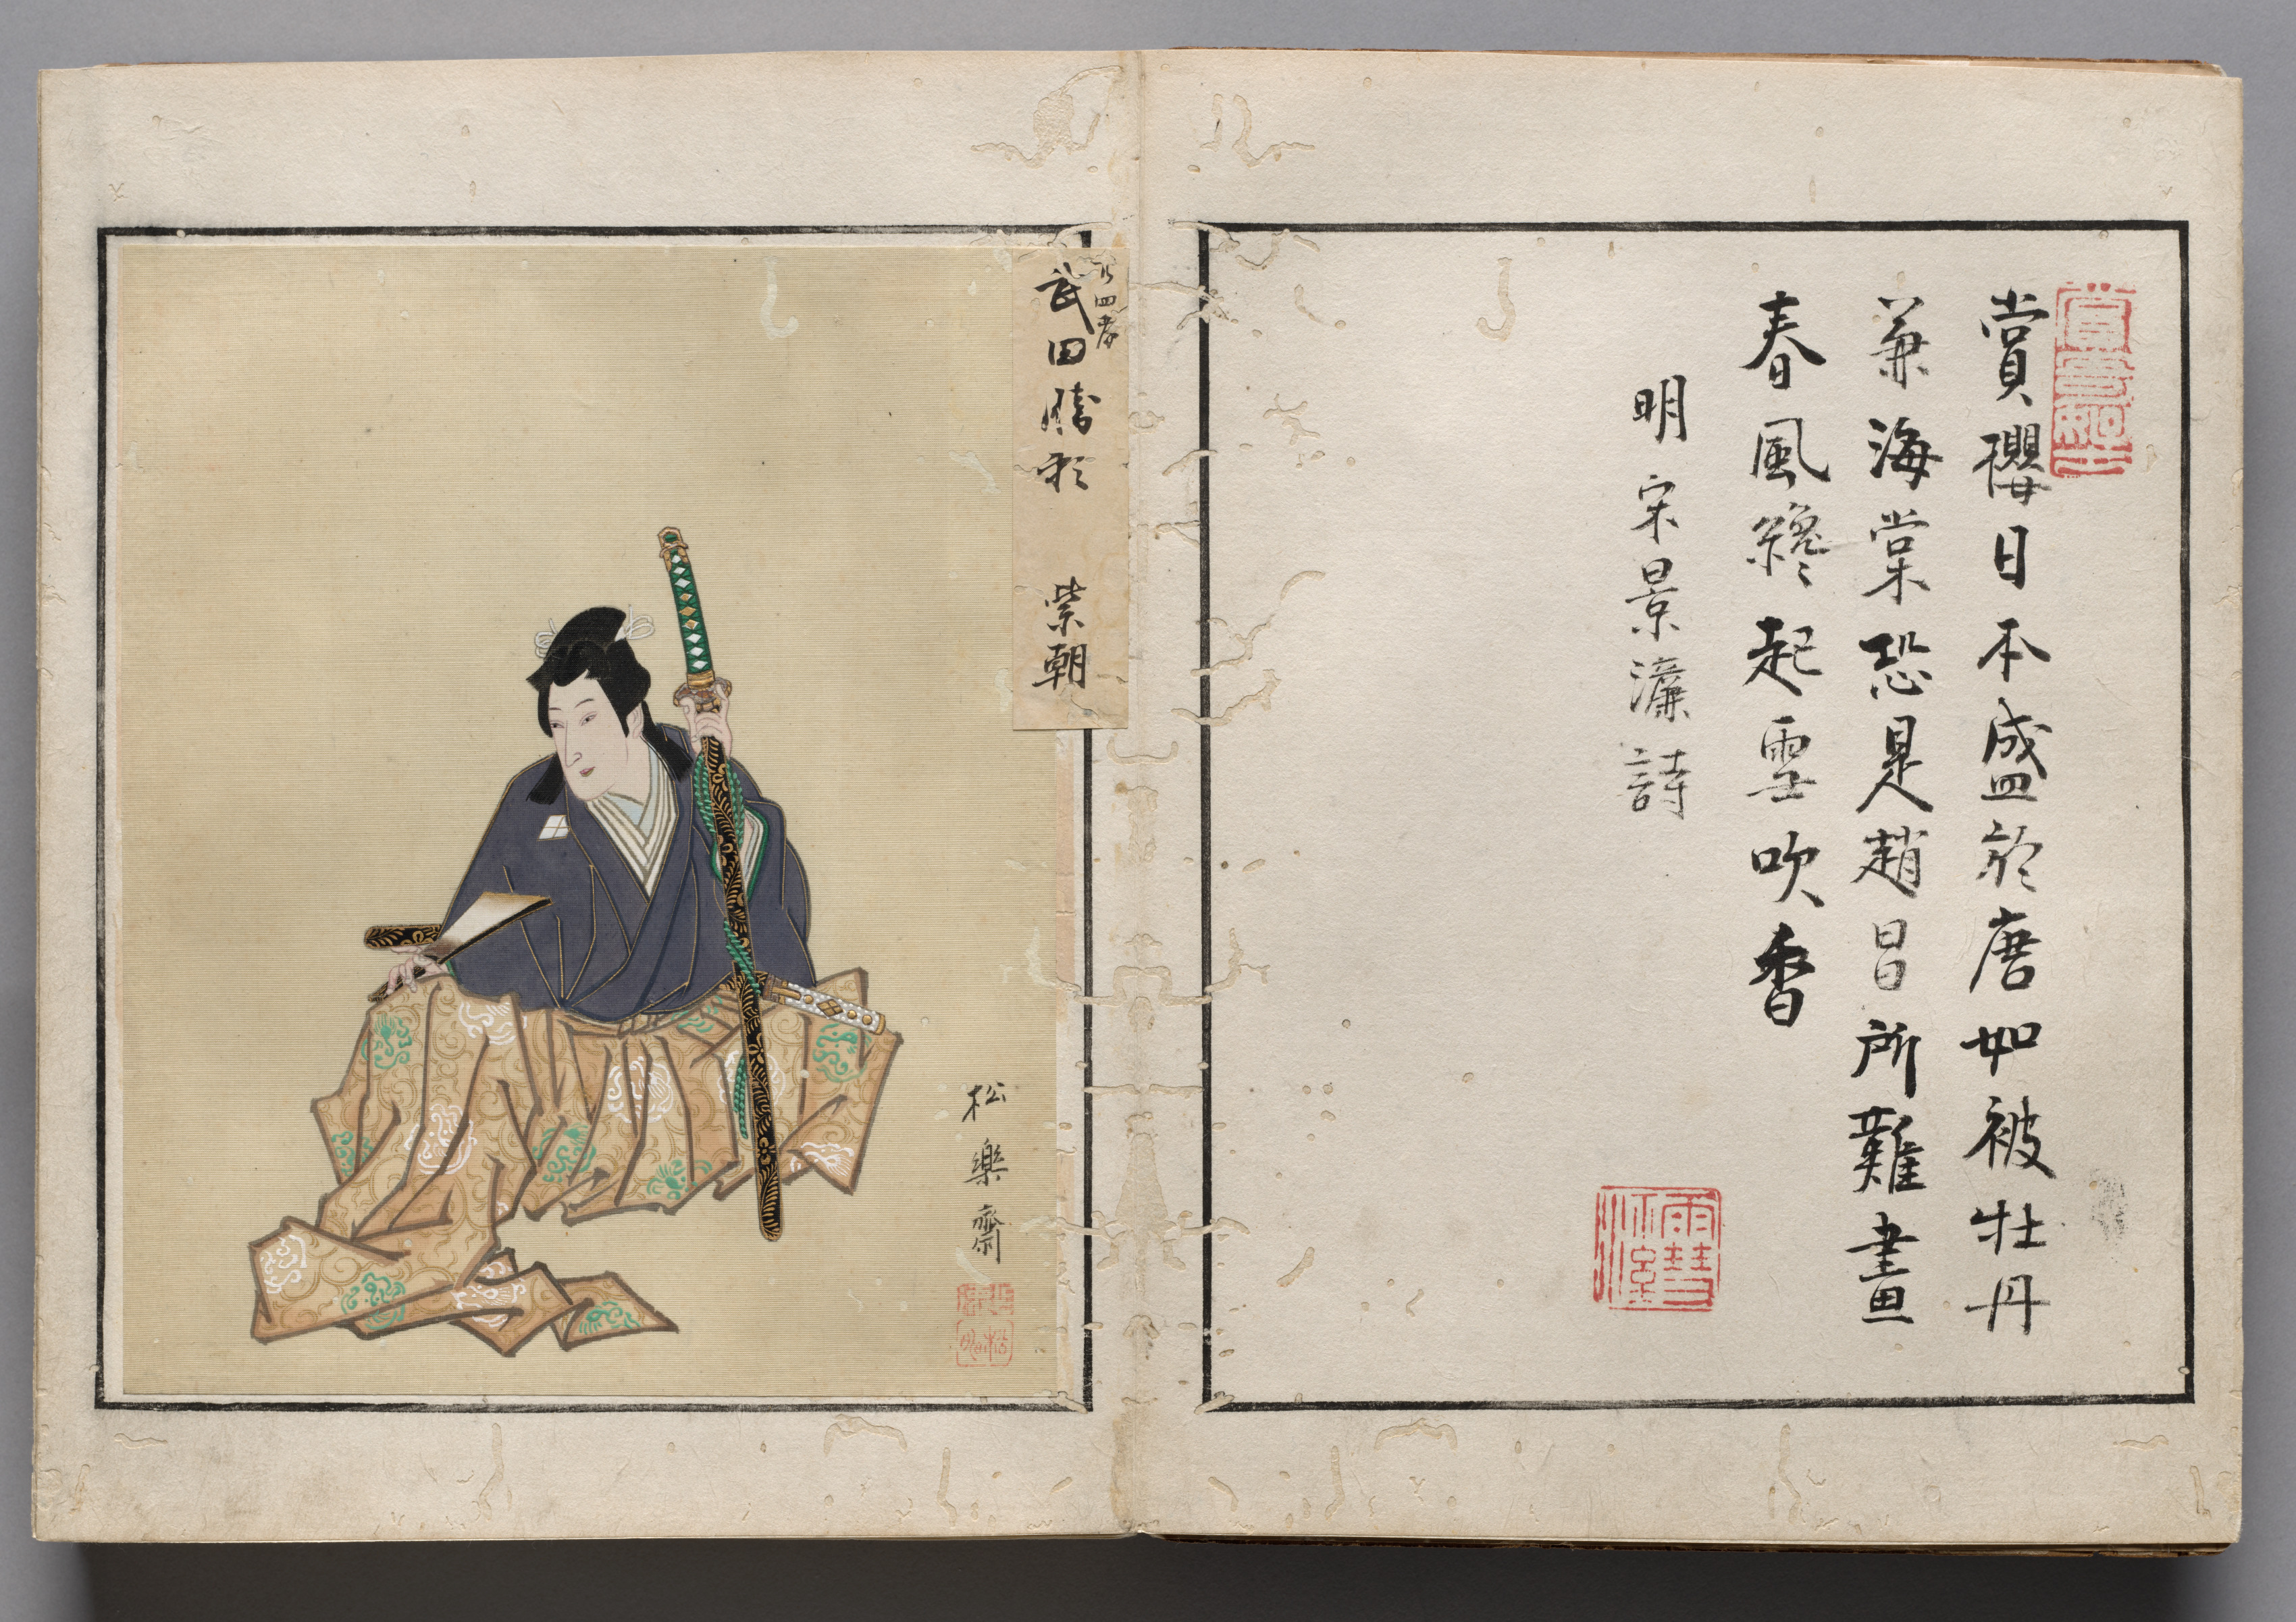 賞櫻日本盛於唐如被牡丹
兼海棠恐是趙昌所難畫
春風纔起雪吹香
明 宋景濂詩
四孝
武田勝頼 紫朝
松樂齋